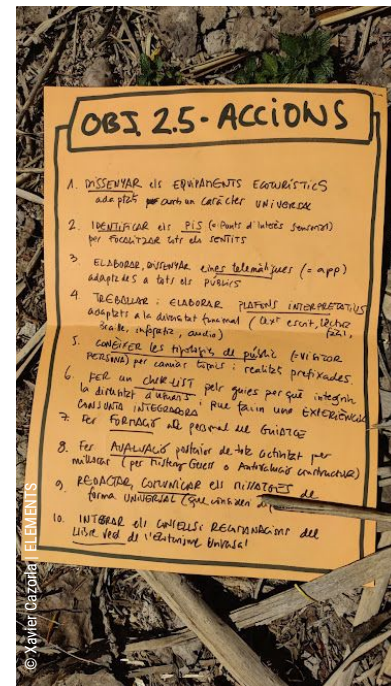 OBJ 2.5 - ACCIONS
1. DISSENYAR els EQUIPAMENTS ECOTURÍSTICS
adaptats amb un CARÀCTER UNIVERSAL
2. IDENTIFICAR els PIS (= Punts d'Interès Sensorial)
per FOCALITZAR tots els SENTITS
3. ELABORAR, DISSENYAR eines telemàtiques (= app)
adaptades a tots els PÚBLICS
4. TREBALLAR i ELABORAR PLAFONS INTERPRETATIUS
adaptats a la diversitat funcional (text escrit, lectura
fàcil,
braille, audio)
5. CONÈIXER les tipologies de públic (=VISITOR
PERSONA) per canviar tòpics i realitats prefixades.
6. FER un CHECK-LIST pels guies per què integrin
la diversitat d'usuaris i que facin una EXPERIÈNCIA
CONJUNTA INTEGRADORA
7. Fer FORMACIÓ al personal de GUIATGE
8. Fer AVALUACIÓ posterior de tota activitat per
millorar (per Mistery Guest o Autoavaluació constructiva)
9. REDACTAR, COMUNICAR els MISSATGES de
forma UNIVERSAL (que
10. INTEGRAR els CONSELLS i RECOMANACIONS del
Llibre verd de l'
© Xavier Cazorla | ELEMENTS